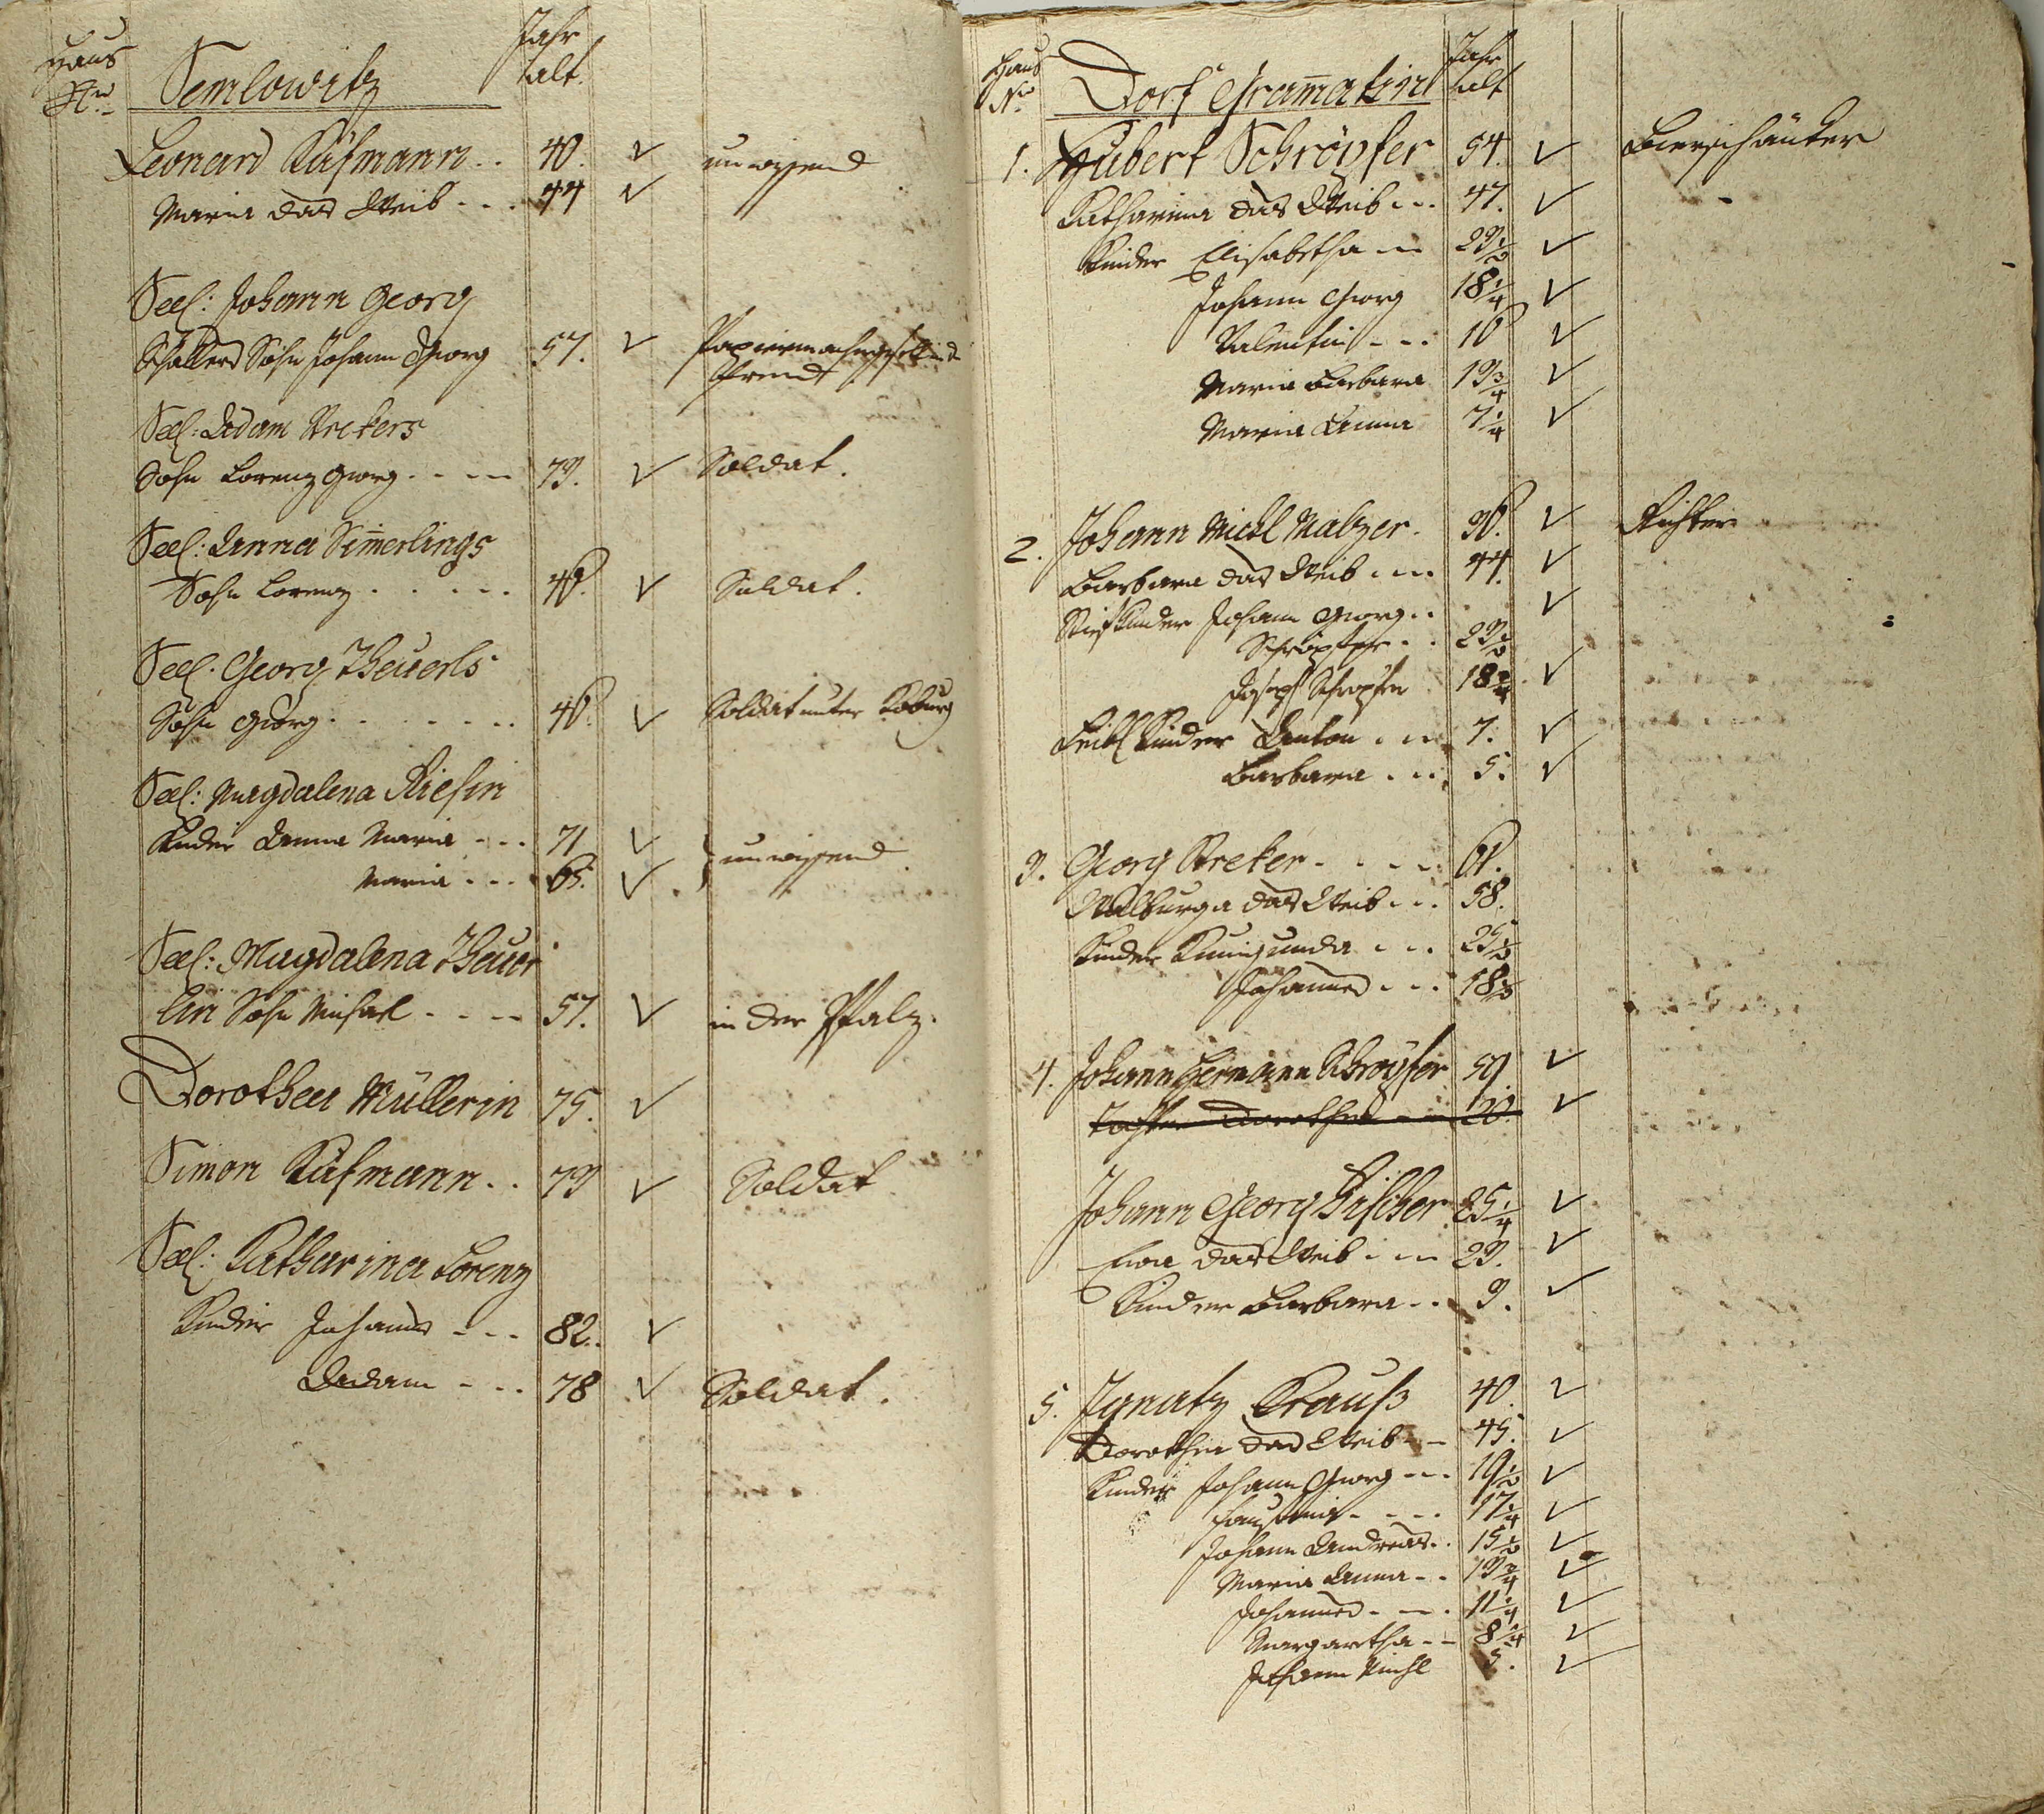 Haus
Nro
Semlowitz
Jahr
alt.
Leonard Küfmann . . 40. ✓ unwissend
Maria das Weib . . . 44 ✓
Seel: Johann Georg
Schallers Sohn Johann Georg 57. ✓
Seel: Adam Strekers
Sohn Lorenz Georg . . . . 79. ✓ Soldat.
Seel: Anna Sim̄erlings
Sohn Lorenz . . . . . 46. ✓ Soldat.
Seel. Georg Theuerls
Sohn Georg . . . . . . . 46. ✓ Soldat unter Koburg
Seel: Magdalena Riesin
Kinder Anna Maria . . . 71 ✓
Maria . . . 65. ✓ } unwissend
Seel: Magdalena Theuer
lin Sohn Michael . . . . 57. ✓ in der Pfalz.
Dorothea Müllerin 75. ✓
Simon Küfmann . . 79 ✓ Soldat
Seel: Catharina Lorenz
Kinder Johannes . . . 82. ✓
Adam . . . 78 ✓ Soldat.
Haus
Nro
Dorf Gram̄atin
Jahr
alt
1. Hubert Schröpfer 54. ✓ Bierschänker
Katharina das Weib . . . 47. ✓
Kinder Elisabetha . . 23½ ✓
Johann Georg 18¼ ✓
Valentin . . . 16 ✓
Maria Barbara 13¾ ✓
Maria Anna 7¼ ✓
2. Johann Michl Maltzer. 36. ✓ Richter
Barbara das Weib . . . 44. ✓
Stiefkinder Johann Georg . . ✓
Schröpfer . . 23½
Joseph Schröpfer 18¾ ✓
Leibl Kinder Anton . . . 7. ✓
Barbara . . . 5. ✓
3. Georg Streker . . . . . 61.
Walburga das Weib . . . 58.
Kinder Kunigunda . . . 25½
Johannes . . . 18½
4. Johann Hermann Schröpfer 59. ✓
Tochter Dorothea . . . 20. ✓
Johann Georg Fischer 25¼ ✓
Eva das Weib . . . 23. ✓
Kinder Barbara . . 3. ✓
5. Ignatz Krauß 40. ✓
Dorothea das Weib . . 45. ✓
Kinder Johann Georg . . . 19½ ✓
17¼ ✓
Johann Andreas . . 15½ ✓
Maria Anna . . 13¾ ✓
Johannes . . . 11¼ ✓
Margaretha . . 8¼ ✓
Johann Michl 5. ✓